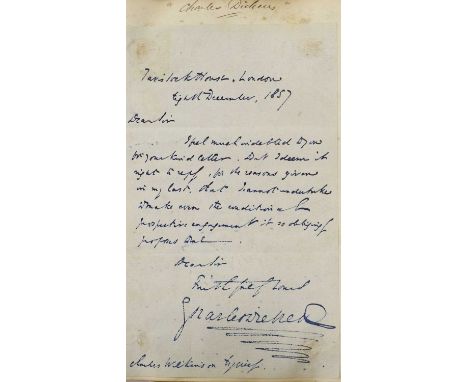 Charles Dickens
Tavistock House, London
Eighth December, 1857
Dear Sir
I feel much indebted to you
for your kind letter. But I deem it
right to reply, for the reasons given
in my last, that I cannot undertake
to make even the conditional
prospective engagement it so obligingly
proposes
Dear Sir
Faithfully Yours
Charles Dickens
Charles Wilkinson Esquire